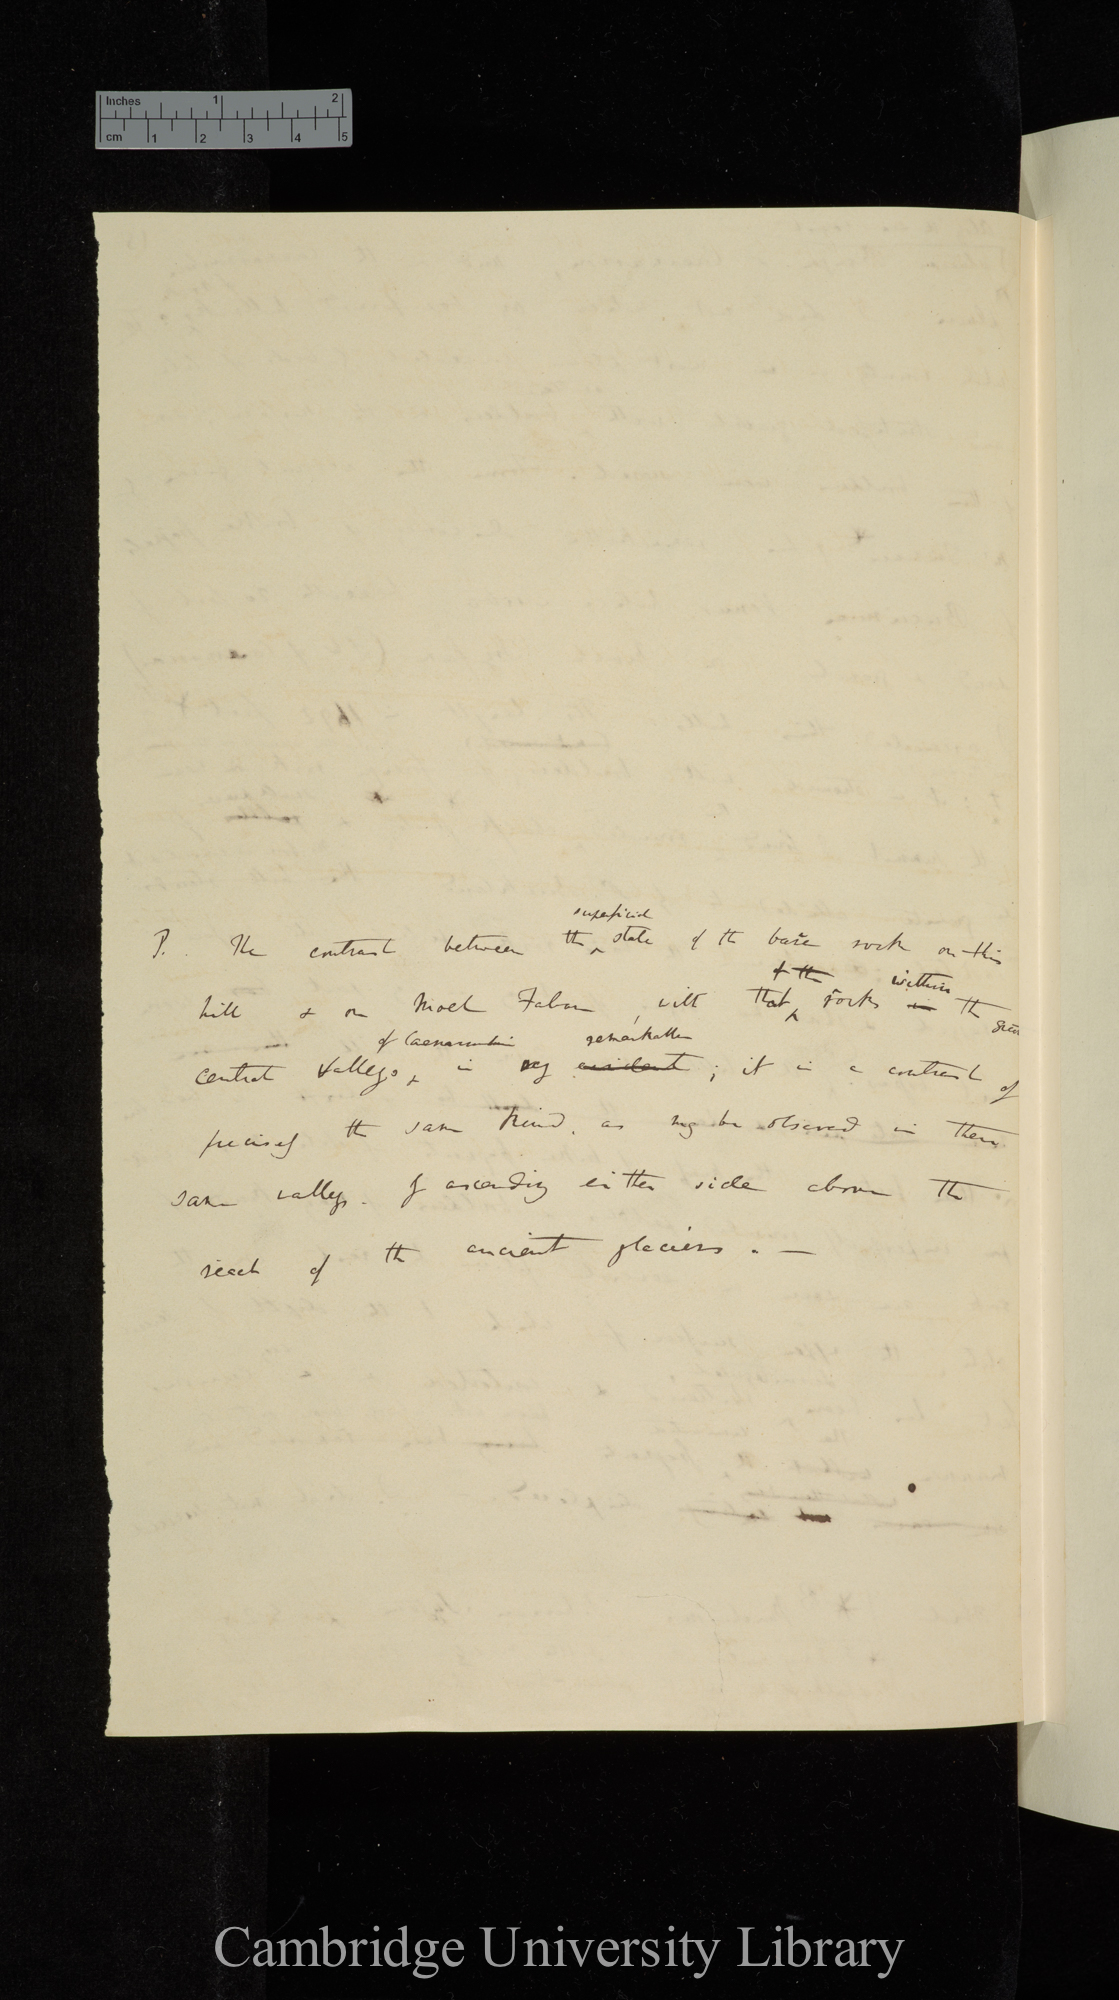 Inches 1 2
cm 1 2 3 4 5
superficial
P. The contrast between the ‸ state of the bare rock on this
of the within
hill & on Moel Faban, with that ‸ rocks in the great
of Caernarvonshire remarkable
central valleys, is very evident; it is a contrast of
precisely the same kind, as may be observed in these
same valleys. If ascending either side above the
reach of the ancient glaciers. —
Cambridge University Library